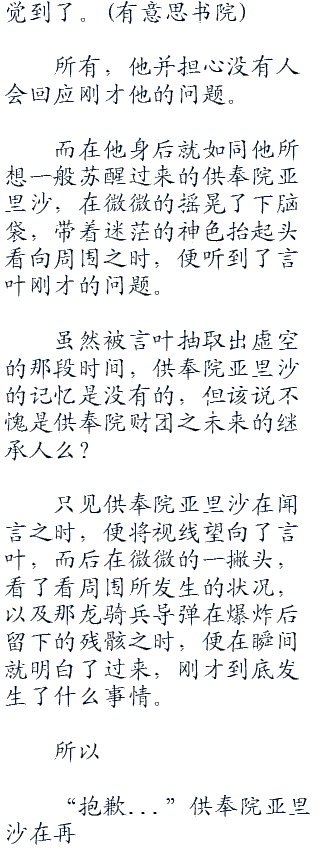 觉到了。(有意思书院)
所有，他并担心没有人
会回应刚才他的问题。
而在他身后就如同他所
想一般苏醒过来的供奉院亚
里沙，在微微的摇晃了下脑
袋，带着迷茫的神色抬起头
看向周围之时，便听到了言
叶刚才的问题。
虽然被言叶抽取出虚空
的那段时间，供奉院亚里沙
的记忆是没有的，但该说不
愧是供奉院财团之未来的继
承人么？
只见供奉院亚里沙在闻
言之时，便将视线望向了言
叶，而后在微微的一撇头，
看了看周围所发生的状况，
以及那龙骑兵导弹在爆炸后
留下的残骸之时，便在瞬间
就明白了过来，刚才到底发
生了什么事情。
所以
“抱歉...”供奉院亚里
沙在再